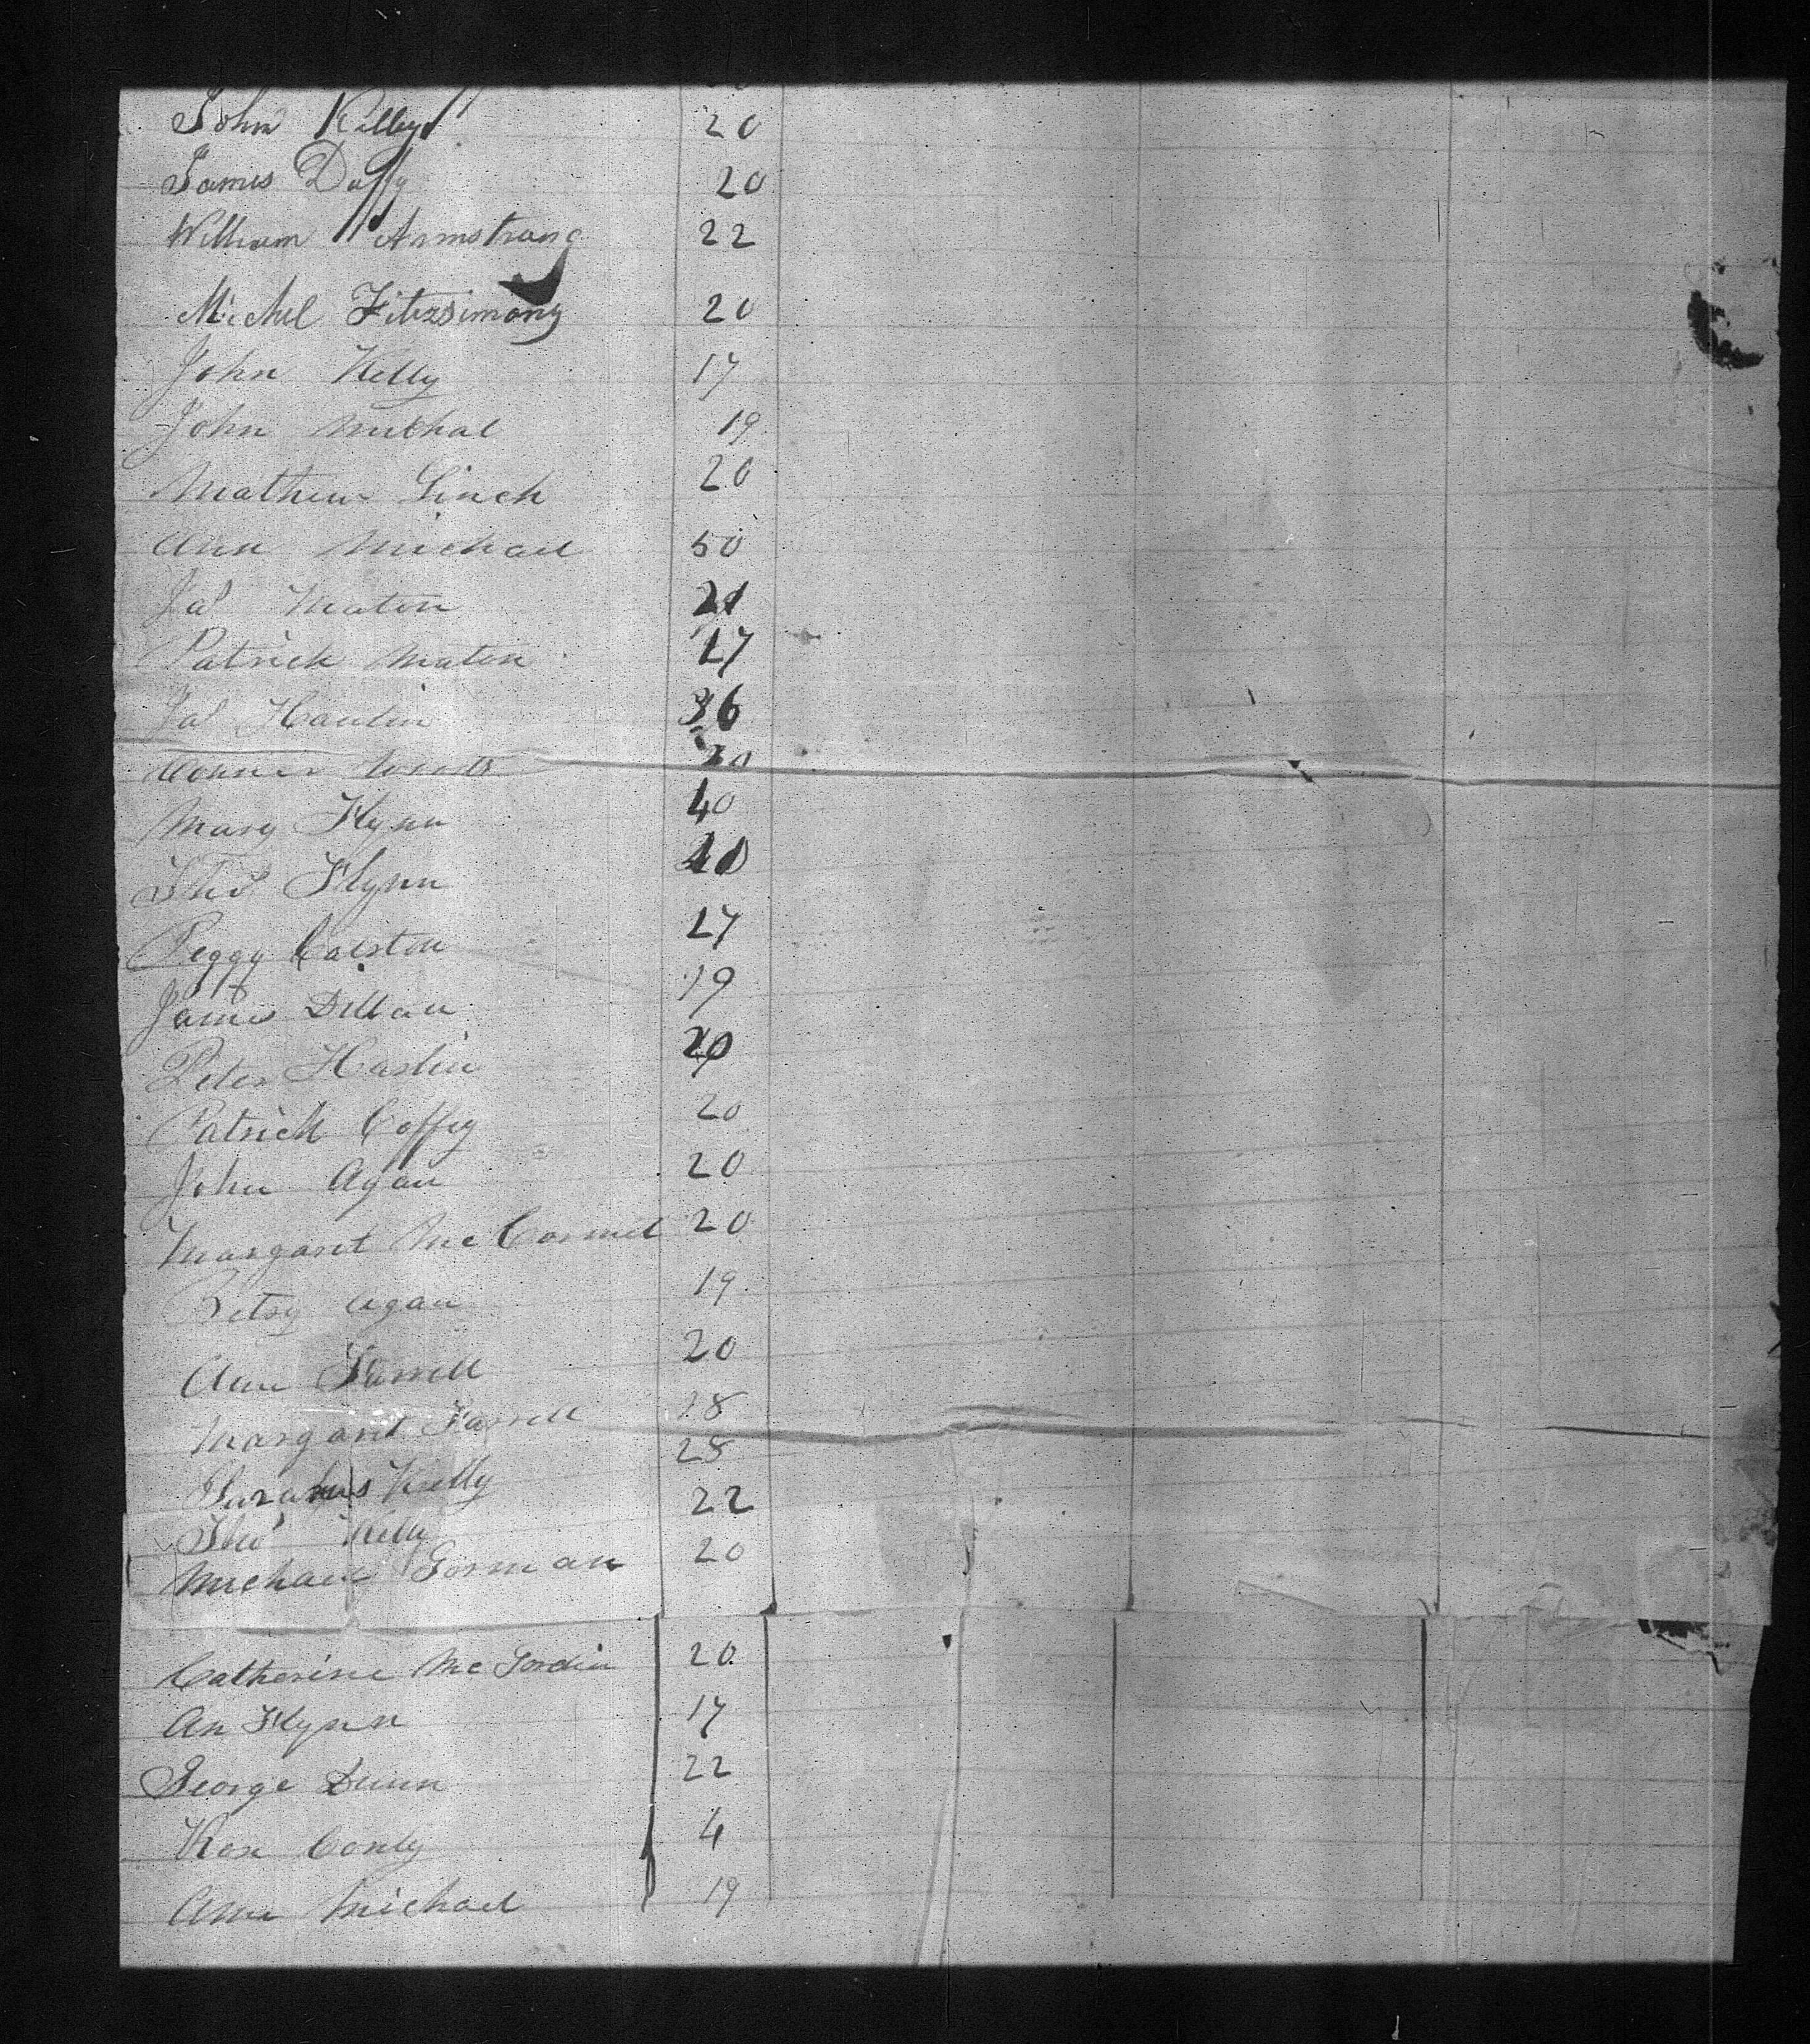 John Kelley 20
James Duffy 20
William Armstrong 22
Michel Fitzsimons 20
John Kelly 17
John Michal 19
Mathew Linch 20
Ann Michael 50
Jas Maton 21
Patrick Maton 17
Jas Hanlin 36
Conner
Mary Flynn 40
Thos Flynn
Peggy Calston 17
James Dillan 19
Peter Haslin 20
Patrick Coffey 20
John Agan 20
Margaret McCormel 20
Betsy Agan 19
Ann Farrell 20
Margaret Farrell 18
Kelly 28
Thos Kelly 22
Michael Gorman 20
Catherine Mc 20
An Flynn 17
George Dunn 22
Rose Conly 4
Ann Michael 19